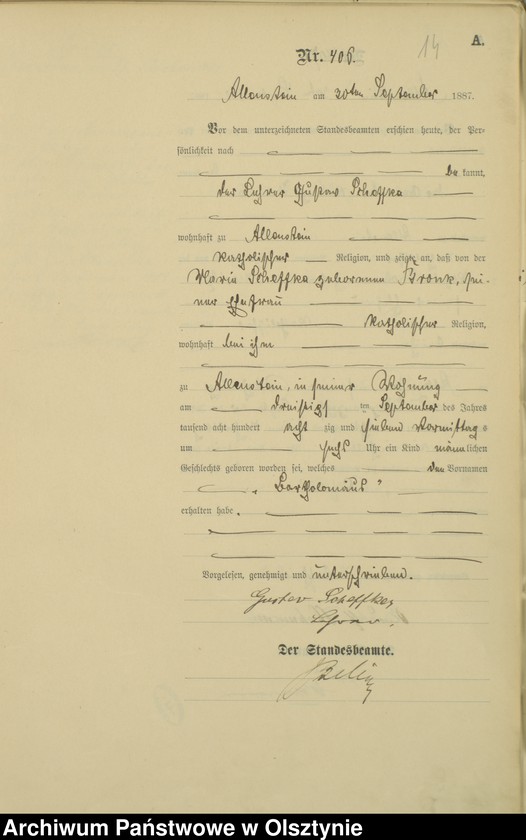 14
A.
Nr. 406.
Allenstein am 20ten September 1887.
Vor dem unterzeichneten Standesbeamten erschien heute, der Per-
sönlichkeit nach
be kannt,
der Lehrer Gustav Scheffka
wohnhaft zu Allenstein
katholischer Religion, und zeigte an, daß von der
Maria Scheffka geborenen Bronk, sei-
ner Ehefrau
katholischer Religion,
wohnhaft bei ihm
zu Allenstein, in seiner Wohnung
am ten September des Jahres
tausend acht hundert acht zig und sieben Vormittags
um sechs Uhr ein Kind männlichen
Geschlechts geboren worden sei, welches den Vornamen
„Bartholomäus"
erhalten habe.
Vorgelesen, genehmigt und unterschrieben.
Gustav Scheffka,
Der Standesbeamte.
Archiwum Państwowe w Olsztynie